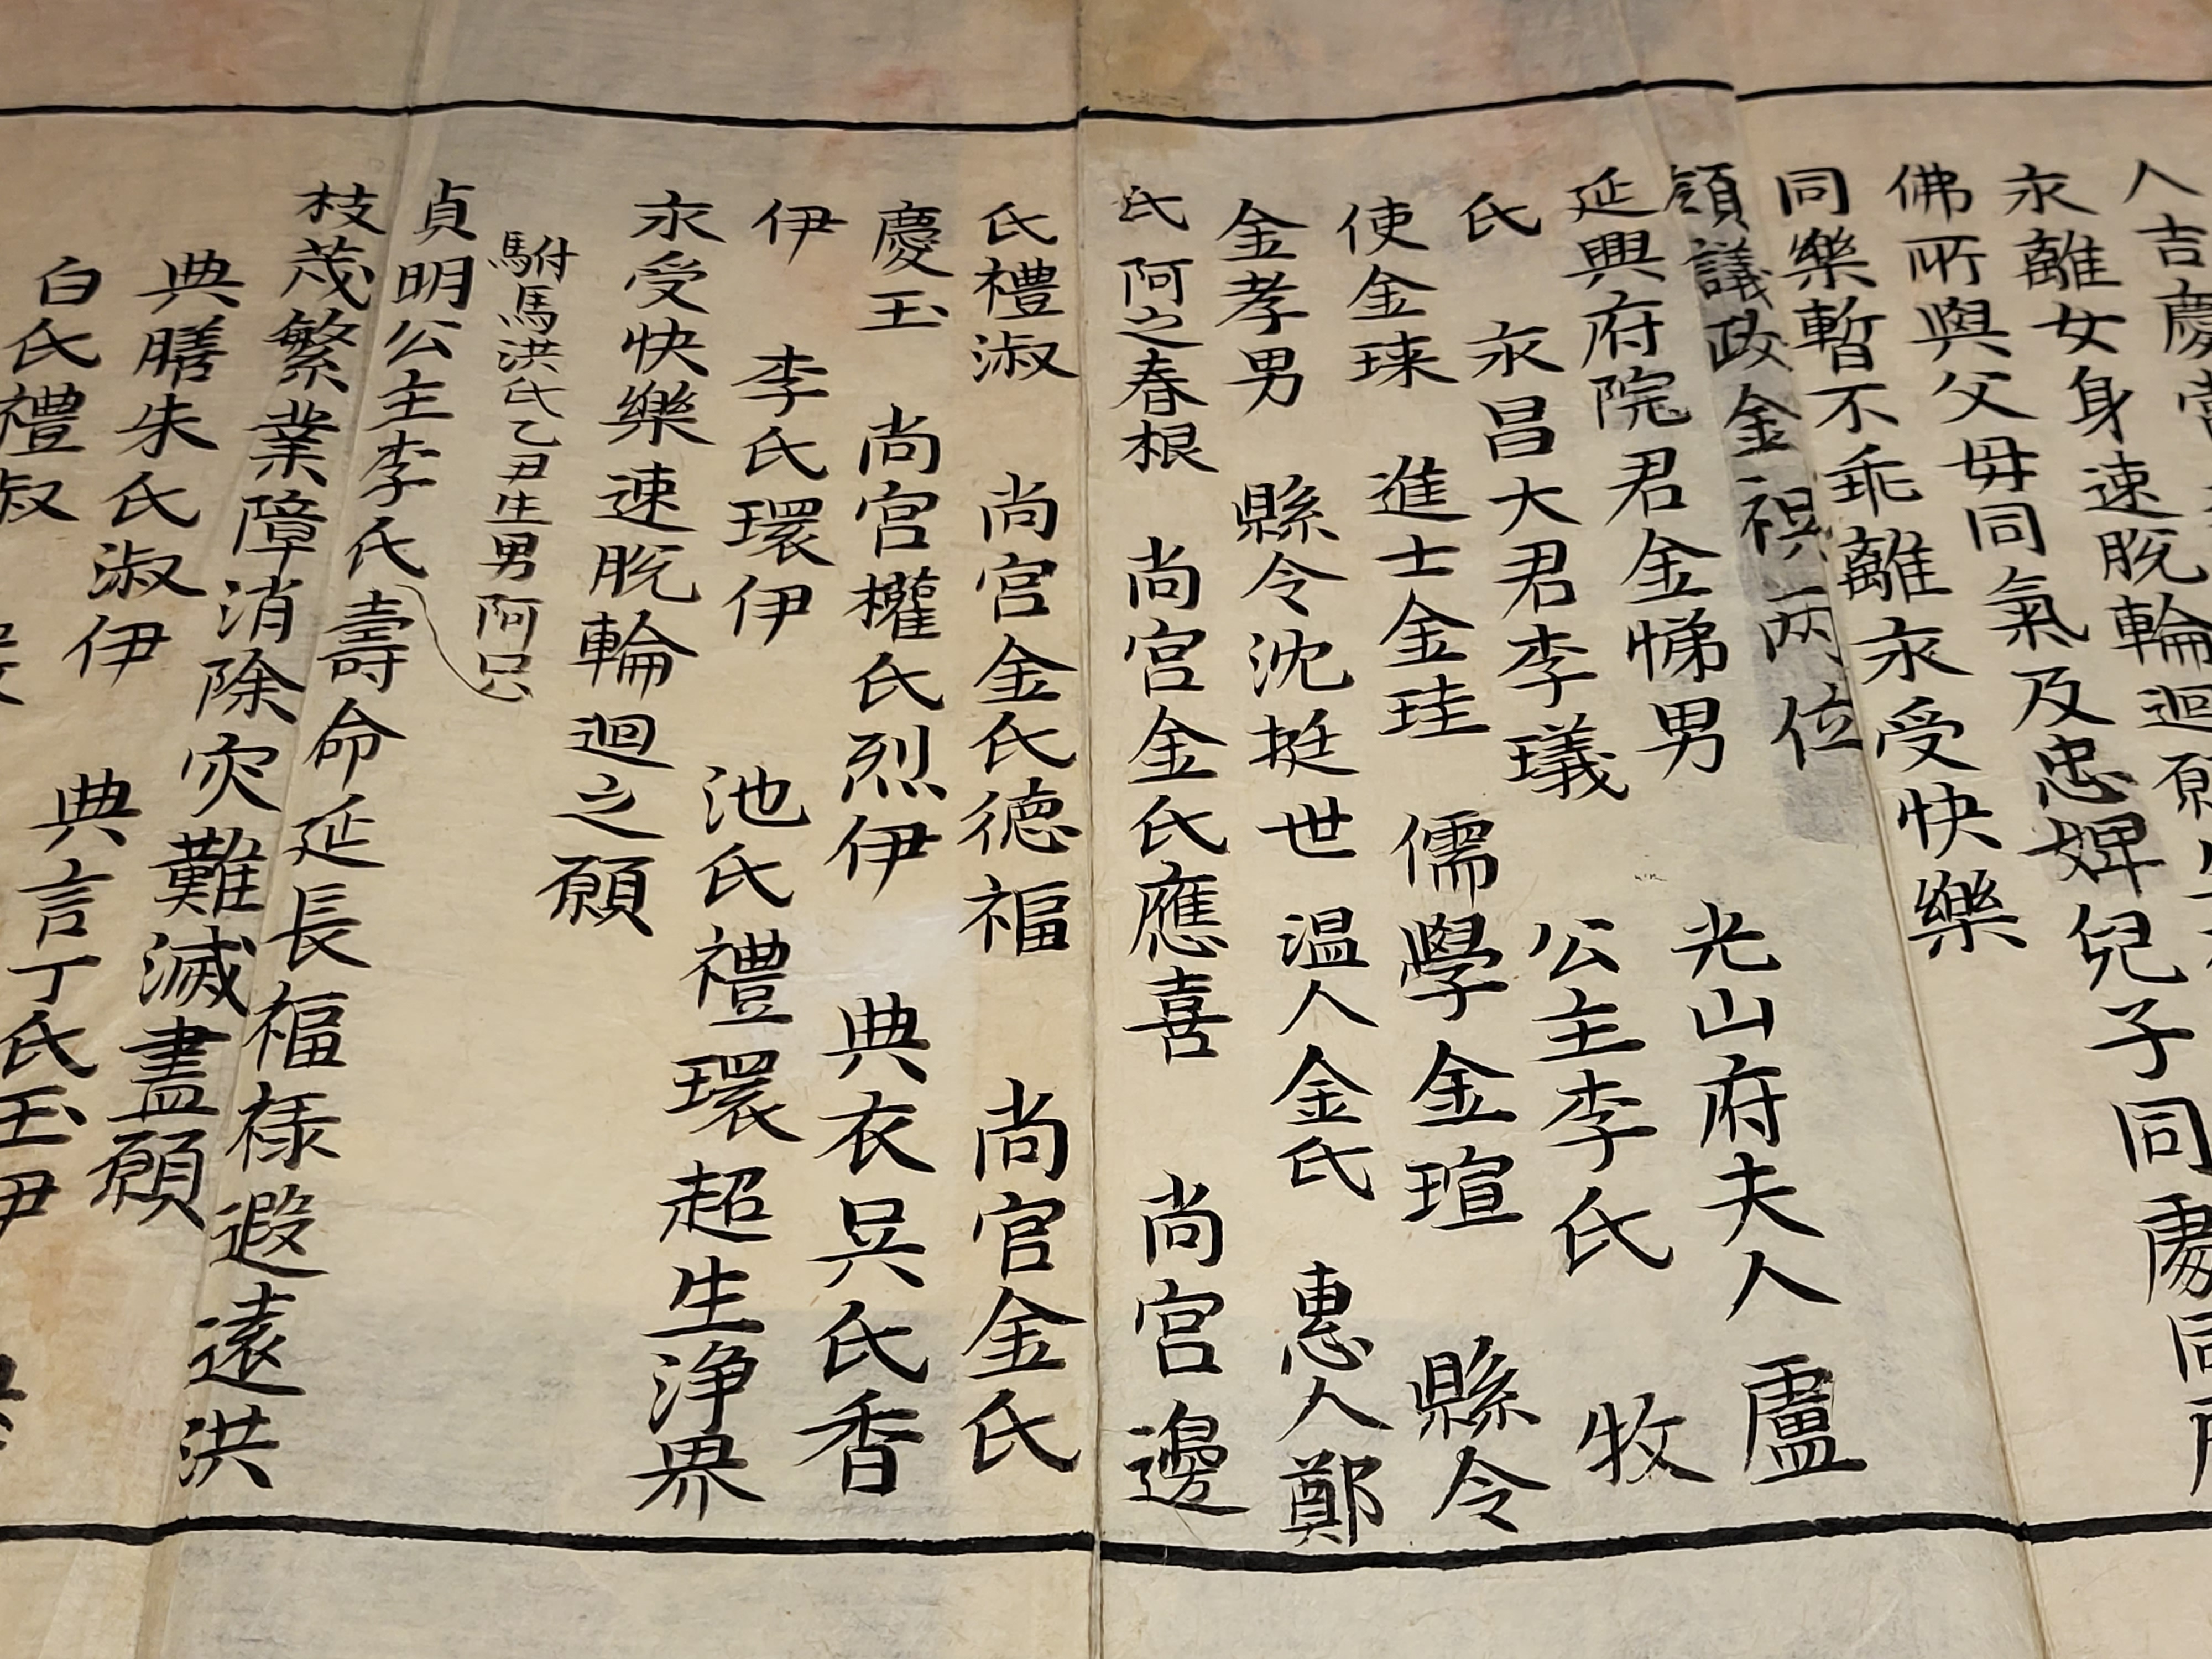 人吉慶當
永離女身速脫輪迴願
佛所與父母同氣及忠婢兒子同處同
同樂暫不乖離永受快樂
領議政金祖兩位
延興府院君金悌男 光山府夫人盧
氏 永昌大君李㼁 公主李氏 牧
使金琜 進士金珪 儒學金瑄 縣令
金孝男 縣令沈挺世 温人金氏 惠人鄭
氏 阿之春根 尚宮金氏應喜 尚宮邊
氏禮淑 尚宮金氏德福 尚宮金氏
慶玉 尚宮權氏烈伊 典衣吳氏香
伊 李氏環伊 池氏禮環超生淨界
永受快樂速脫輪迴之願
駙馬洪氏乙丑生男阿只
貞明公主李氏壽命延長福祿遐遠洪
枝茂繁業障消除灾難滅盡願
典膳朱氏淑伊 典言丁氏玉伊
白氏禮淑